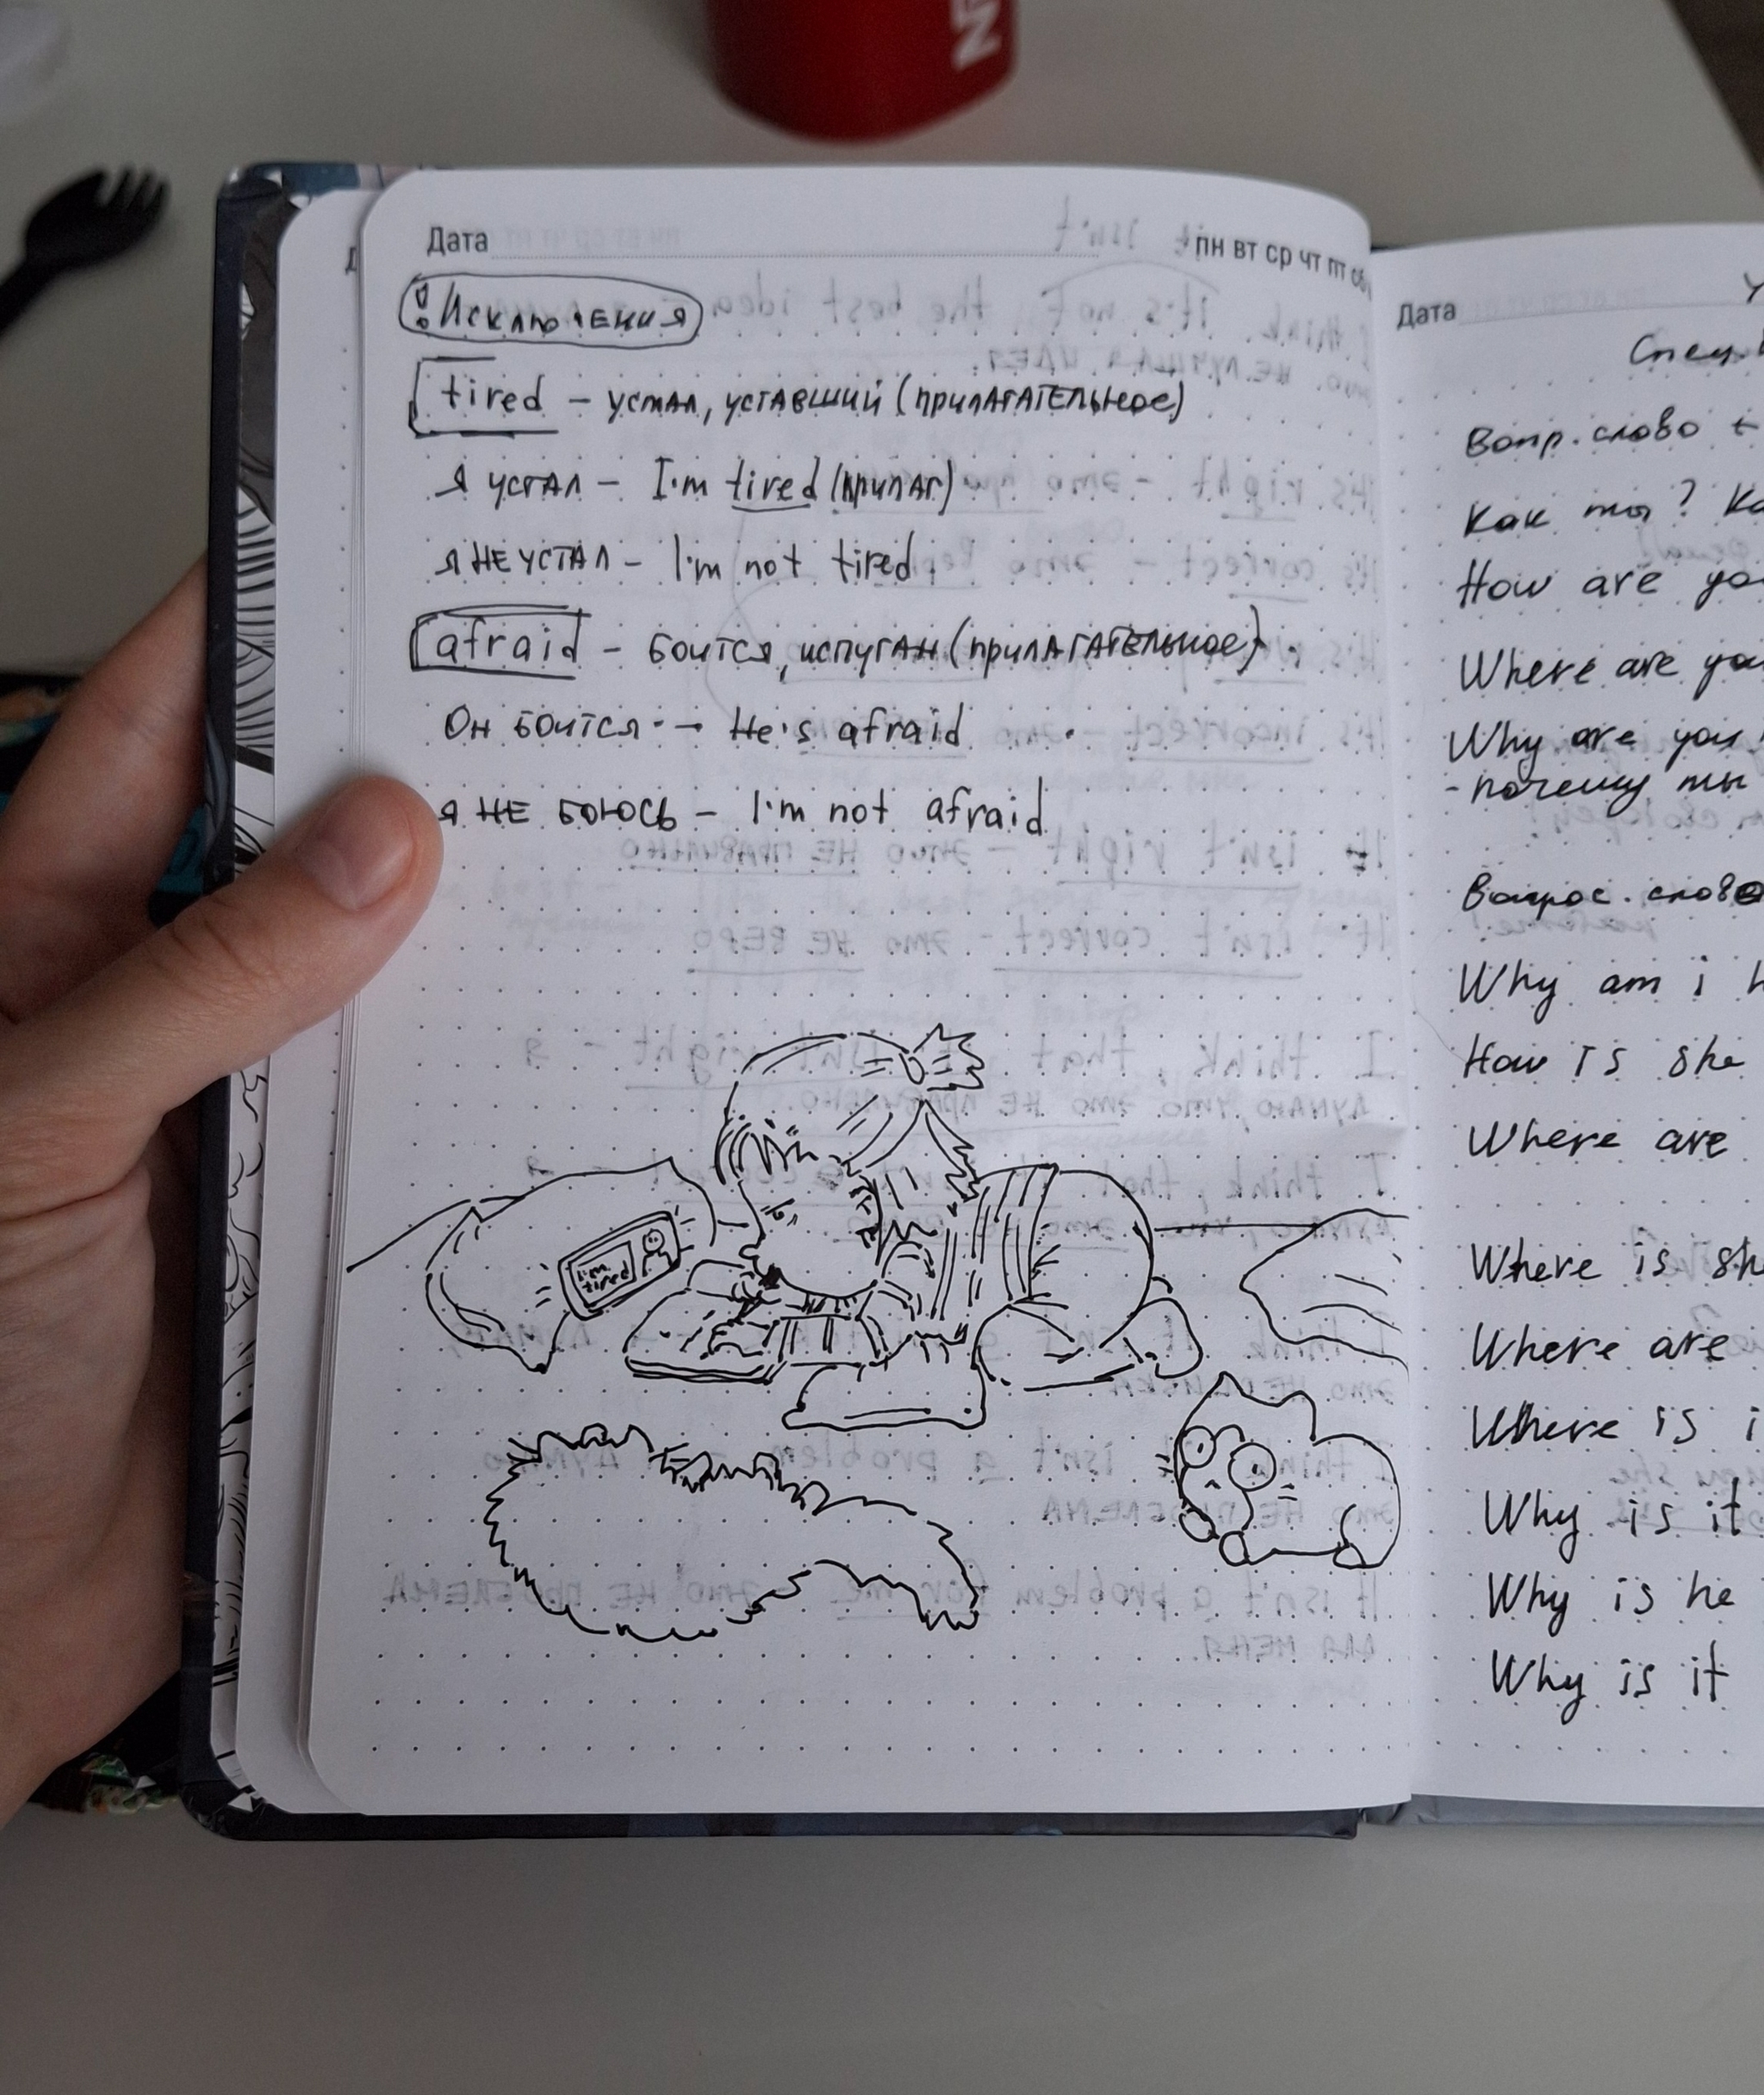 NE
Дата
пн вт ср чт пт сб
! Исключения
tired – устал, уставший (прилагательное)
Я устал – I'm tired (прилаг)
я не устал – I'm not tired
afraid – боится, испуган (прилагательное)
Он боится → He's afraid
я не боюсь – I'm not afraid
I'm
tired
Дата
Спец.
Вопр. слово +
Как ты?
How are
Where are you
Why are you
- почему ты
Вопрос. слово
Why am i
How is she
Where are
Where is
Where are
Where is
Why is it
Why is he
Why is it